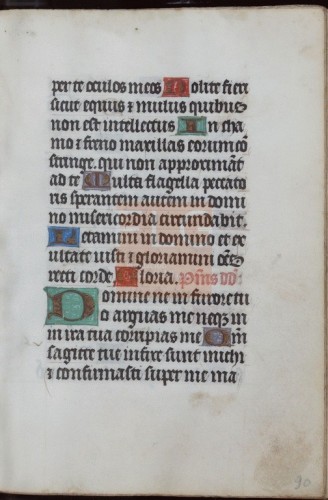 per te oculos meos Nolite fieri
sicut equus ⁊ mulus quibus
non est intellectus In cha
mo ⁊ freno maxillas eorum cō
stringe. qui non approximāt
ad te Multa flagella peccato
ris sperantem autem in domi
no misericordia circundabit.
Letamini in domino et ex
ultate iusti ⁊ gloriamini oēs
recti corde. Gloria.
Domine ne in furore tu
o arguas me neqꝫ in
in ira tua corripias me Qm̄
sagitte tue infixe sunt michi
⁊ confirmasti super me ma
90